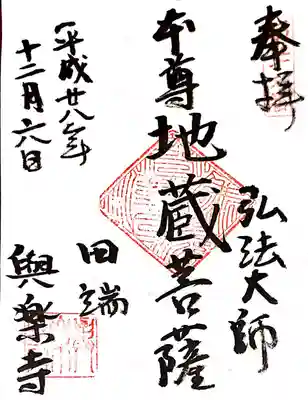 奉拝
弘法大師
本尊地蔵菩薩
田端
與楽寺
平成廿八年
十二月六日